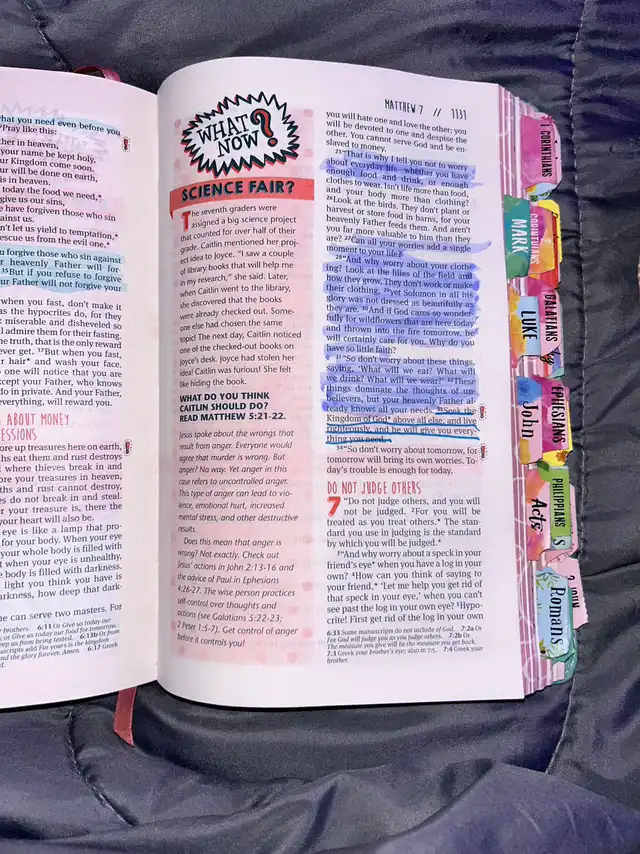 hat you need even before you
Pray like this:
ther in heaven,
your name be kept holy.
ur Kingdom come soon.
ur will be done on earth,
is in heaven.
today the food we need,*
give us our sins,
e have forgiven those who sin
against us.
n't let us yield to temptation,*
rescue us from the evil one.*
u forgive those who sin against
r heavenly Father will for-
15But if you refuse to forgive
ur Father will not forgive your
when you fast, don't make it
as the hypocrites do, for they
miserable and disheveled so
l admire them for their fasting.
he truth, that is the only reward
ever get. 17But when you fast,
r hair* and wash your face.
o one will notice that you are
xcept your Father, who knows
do in private. And your Father,
everything, will reward you.
ABOUT MONEY
ESSIONS
ore up treasures here on earth,
ths eat them and rust destroys
d where thieves break in and
ore your treasures in heaven,
ths and rust cannot destroy,
es do not break in and steal.
r your treasure is, there the
your heart will also be.
eye is like a lamp that pro-
for your body. When your eye
your whole body is filled with
t when your eye is unhealthy,
e body is filled with darkness.
light you think you have is
arkness, how deep that dark-
ne can serve two masters. For
brothers. 6:11 Or Give us today our
or Give us today our food for tomorrow.
eep us from being tested. 6:13b Or from
scripts add For yours is the kingdom
and the glory forever. Amen. 6:17 Greek
WHAT
NOW?
SCIENCE FAIR?
The seventh graders were
assigned a big science project
that counted for over half of their
grade. Caitlin mentioned her proj-
ect idea to Joyce. "I saw a couple
of library books that will help me
in my research," she said. Later,
when Caitlin went to the library,
she discovered that the books
were already checked out. Some-
one else had chosen the same
topic! The next day, Caitlin noticed
one of the checked-out books on
Joyce's desk. Joyce had stolen her
idea! Caitlin was furious! She felt
like hiding the book.
WHAT DO YOU THINK
CAITLIN SHOULD DO?
READ MATTHEW 5:21-22.
Jesus spoke about the wrongs that
result from anger. Everyone would
agree that murder is wrong. But
anger? No way. Yet anger in this
case refers to uncontrolled anger.
This type of anger can lead to vio-
lence, emotional hurt, increased
mental stress, and other destructive
results.
Does this mean that anger is
wrong? Not exactly. Check out
Jesus' actions in John 2:13-16 and
the advice of Paul in Ephesians
4:26-27. The wise person practices
self-control over thoughts and
actions (see Galatians 5:22-23;
2 Peter 1:5-7). Get control of anger
before it controls you!
MATTHEW 7 // 1131
you will hate one and love the other; you
will be devoted to one and despise the
other. You cannot serve God and be en-
slaved to money.
25"That is why I tell you not to worry
about everyday life—whether you have
enough food and drink, or enough
clothes to wear. Isn't life more than food,
and your body more than clothing?
26Look at the birds. They don't plant or
harvest or store food in barns, for your
heavenly Father feeds them. And aren't
you far more valuable to him than they
are? 27Can all your worries add a single
moment to your life?
28"And why worry about your cloth-
ing? Look at the lilies of the field and
how they grow. They don't work or make
their clothing, 29yet Solomon in all his
glory was not dressed as beautifully as
they are. 30And if God cares so wonder-
fully for wildflowers that are here today
and thrown into the fire tomorrow, he
will certainly care for you. Why do you
have so little faith?
31"So don't worry about these things,
saying, 'What will we eat? What will
we drink? What will we wear?' 32These
things dominate the thoughts of un-
believers, but your heavenly Father al-
ready knows all your needs. 33Seek the
Kingdom of God* above all else, and live
righteously, and he will give you every-
thing you need.
34"So don't worry about tomorrow, for
tomorrow will bring its own worries. To-
day's trouble is enough for today.
DO NOT JUDGE OTHERS
7 "Do not judge others, and you will
not be judged. 2For you will be
treated as you treat others.* The stan-
dard you use in judging is the standard
by which you will be judged.*
3"And why worry about a speck in your
friend's eye* when you have a log in your
own? 4How can you think of saying to
your friend,* 'Let me help you get rid of
that speck in your eye,' when you can't
see past the log in your own eye? 5Hypo-
crite! First get rid of the log in your own
6:33 Some manuscripts do not include of God. 7:2a Or
For God will judge you as you judge others. 7:2b Or
The measure you give will be the measure you get back.
7:3 Greek your brother's eye; also in 7:5. 7:4 Greek your
brother.
1 CORINTHIANS
CORINTHIANS
MARK
GALATIANS
LUKE
EPHESIANS
John
PHILIPPIANS
Acts
2 JOHN
Romans